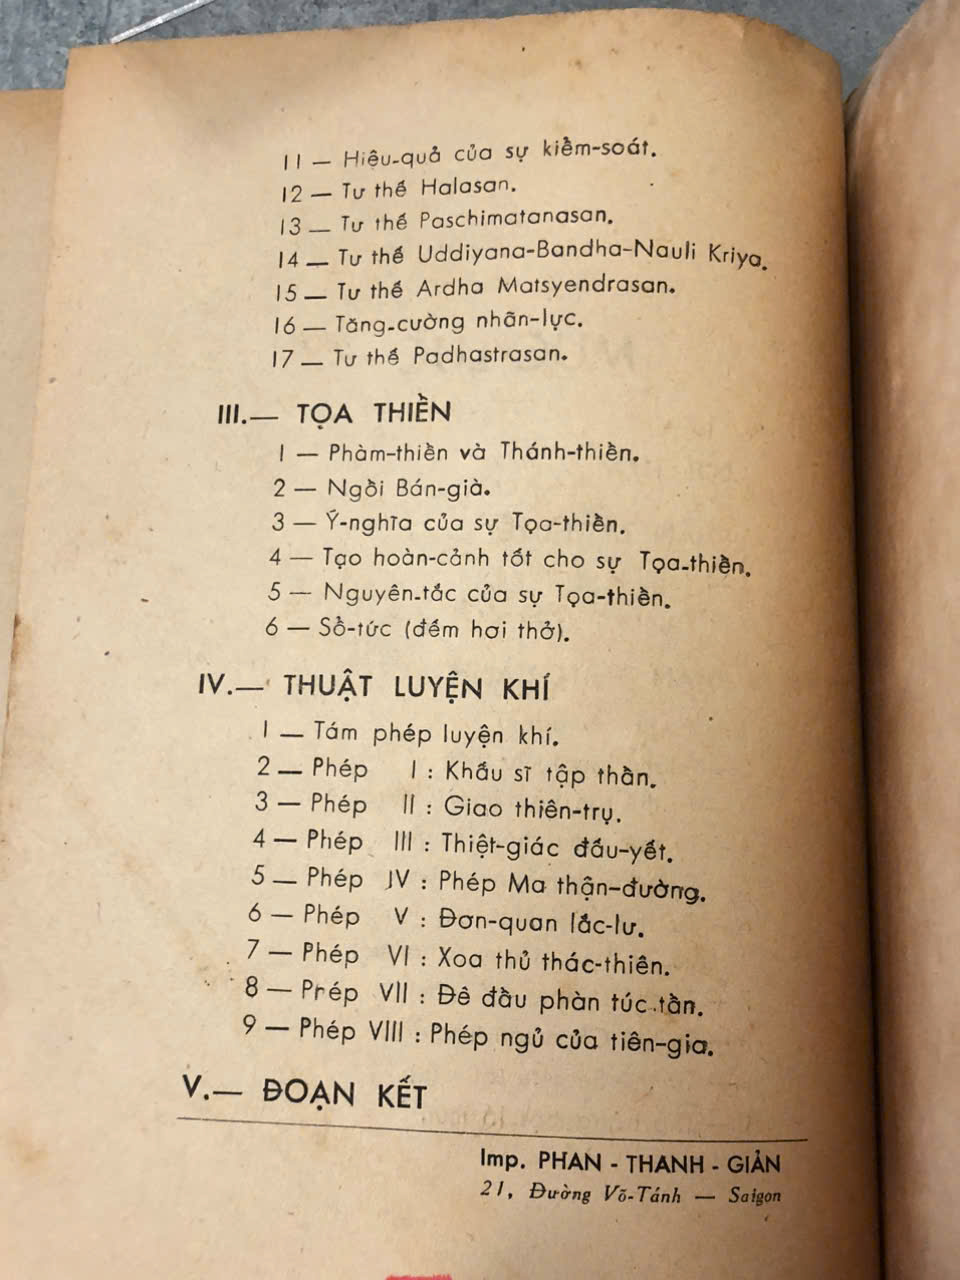 11 — Hiệu-quả của sự kiểm-soát.
12 — Tư thế Halasan.
13 — Tư thế Paschimatanasan.
14 — Tư thế Uddiyana-Bandha-Nauli Kriya.
15 — Tư thế Ardha Matsyendrasan.
16 — Tăng-cường nhãn-lực.
17 — Tư thế Padhastrasan.
III.— TỌA THIỀN
1 — Phàm-thiền và Thánh-thiền.
2 — Ngồi Bán-già.
3 — Ý-nghĩa của sự Tọa-thiền.
4 — Tạo hoàn-cảnh tốt cho sự Tọa-thiền.
5 — Nguyên-tắc của sự Tọa-thiền.
6 — Sổ-tức (đếm hơi thở).
IV.— THUẬT LUYỆN KHÍ
1 — Tám phép luyện khí.
2 — Phép I : Khấu sĩ tập thần.
3 — Phép II : Giao thiên-trụ.
4 — Phép III : Thiệt-giác đấu-yết.
5 — Phép IV : Phép Ma thận-đường.
6 — Phép V : Đơn-quan lắc-lư.
7 — Phép VI : Xoa thủ thác-thiên.
8 — Prép VII : Đê đầu phàn túc-tần.
9 — Phép VIII : Phép ngủ của tiên-gia.
V.— ĐOẠN KẾT
Imp. PHAN - THANH - GIẢN
21, Đường Võ-Tánh — Saigon